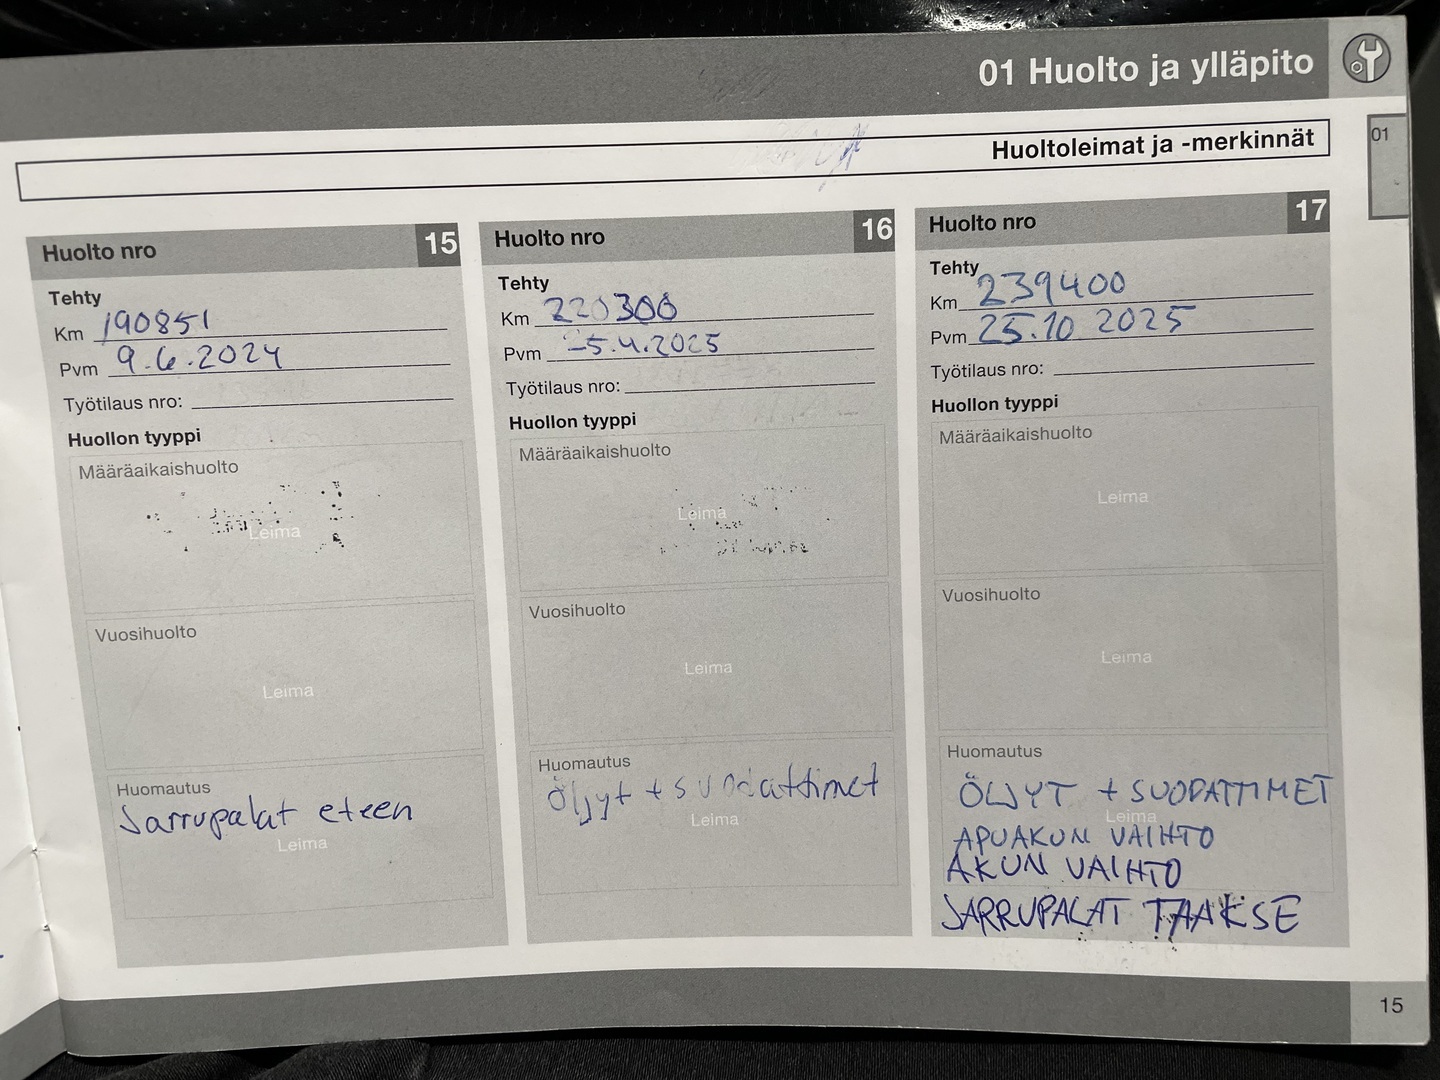 01 Huolto ja ylläpito
01
Huoltoleimat ja -merkinnät
Huolto nro 15
Tehty
Km 190851
Pvm 9.6.2024
Työtilaus nro:
Huollon tyyppi
Määräaikaishuolto
Leima
Vuosihuolto
Leima
Huomautus
Sarrupalat eteen
Leima
Huolto nro 16
Tehty
Km 220300
Pvm 5.4.2025
Työtilaus nro:
Huollon tyyppi
Määräaikaishuolto
Leima
Vuosihuolto
Leima
Huomautus
Öljyt + suodattimet
Leima
Huolto nro 17
Tehty
Km 239400
Pvm 25.10 2025
Työtilaus nro:
Huollon tyyppi
Määräaikaishuolto
Leima
Vuosihuolto
Leima
Huomautus
ÖLJYT + SUODATTIMET
Leima
APUAKUN VAIHTO
AKUN VAIHTO
JARRUPALAT TAAKSE
15